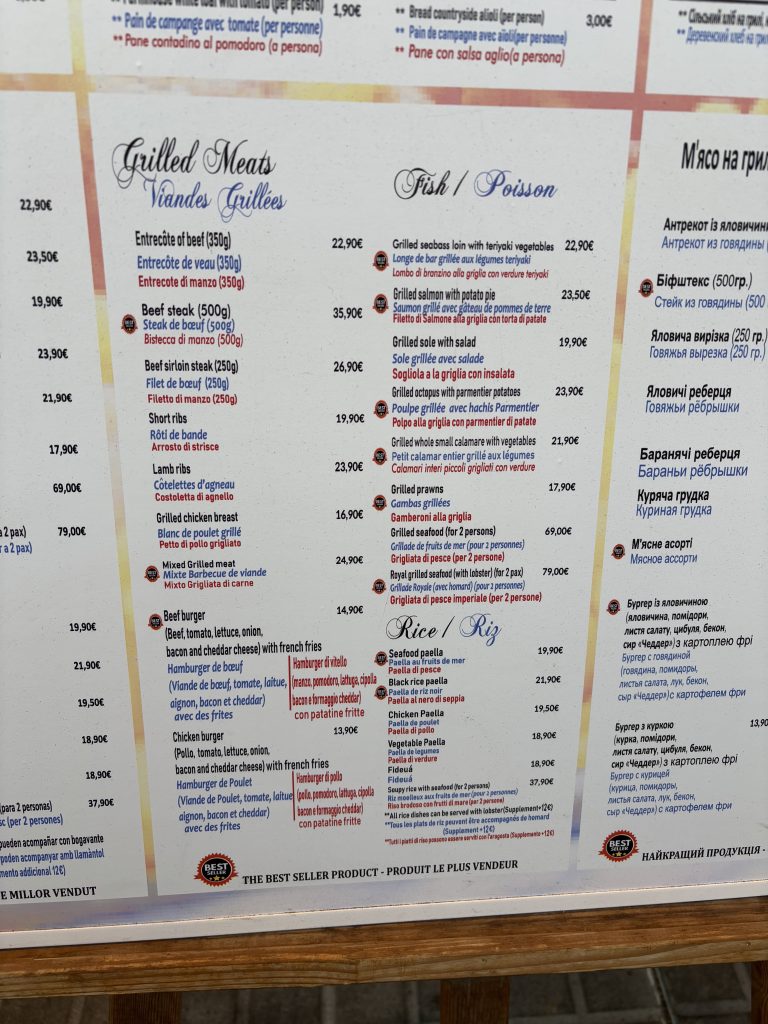 tomato (per person) 1,90€
** Pain de campange avec tomate (per personne)
** Pane contadino al pomodoro (a persona)
** Bread countryside alioli (per person) 3,00€
** Pain de campagne avec aïoli(per personne)
** Pane con salsa aglio(a persona)
22,90€
23,50€
19,90€
23,90€
21,90€
17,90€
69,00€
a 2 pax) 79,00€
r a 2 pax)
19,90€
21,90€
19,50€
18,90€
18,90€
para 2 personas) 37,90€
sc (per 2 persones)
pueden acompañar con bogavante
poden acompanyar amb llamàntol
mento addicional 12€)
E MILLOR VENDUT
Grilled Meats
Viandes Grillées
Entrecôte of beef (350g) 22,90€
Entrecôte de veau (350g)
Entrecote di manzo (350g)
Beef steak (500g) 35,90€
Steak de bœuf (500g)
Bistecca di manzo (500g)
Beef sirloin steak (250g) 26,90€
Filet de bœuf (250g)
Filetto di manzo (250g)
Short ribs 19,90€
Rôti de bande
Arrosto di strisce
Lamb ribs 23,90€
Côtelettes d'agneau
Costoletta di agnello
Grilled chicken breast 16,90€
Blanc de poulet grillé
Petto di pollo grigliato
Mixed Grilled meat 24,90€
Mixte Barbecue de viande
Mixto Grigliata di carne
Beef burger 14,90€
(Beef, tomato, lettuce, onion,
bacon and cheddar cheese) with french fries
Hamburger de bœuf
(Viande de bœuf, tomate, laitue,
aignon, bacon et cheddar)
avec des frites
Hamburger di vitello
(manzo, pomodoro, lattuga, cipolla
bacon e formaggio cheddar)
con patatine fritte
Chicken burger 13,90€
(Pollo, tomato, lettuce, onion,
bacon and cheddar cheese) with french fries
Hamburger de Poulet
(Viande de Poulet, tomate, laitue
aignon, bacon et cheddar)
avec des frites
Hamburger di pollo
(pollo, pomodoro, lattuga, cipolla
bacon e formaggio cheddar)
con patatine fritte
Fish / Poisson
Grilled seabass loin with teriyaki vegetables 22,90€
Longe de bar grillée aux légumes teriyaki
Lombo di branzino alla griglia con verdure teriyaki
Grilled salmon with potato pie 23,50€
Saumon grillé avec gâteau de pommes de terre
Filetto di Salmone alla griglia con torta di patate
Grilled sole with salad 19,90€
Sole grillée avec salade
Sogliola a la griglia con insalata
Grilled octopus with parmentier potatoes 23,90€
Poulpe grillée avec hachis Parmentier
Polpo alla griglia con parmentier di patate
Grilled whole small calamare with vegetables 21,90€
Petit calamar entier grillé aux légumes
Calamari interi piccoli grigliati con verdure
Grilled prawns 17,90€
Gambas grillées
Gamberoni alla griglia
Grilled seafood (for 2 persons) 69,00€
Grillade de fruits de mer (pour 2 personnes)
Grigliata di pesce (per 2 persone)
Royal grilled seafood (with lobster) (for 2 pax) 79,00€
Grillade Royale (avec homard) (pour 2 personnes)
Grigliata di pesce imperiale (per 2 persone)
Rice / Riz
Seafood paella 19,90€
Paella au fruits de mer
Paella di pesce
Black rice paella 21,90€
Paella de riz noir
Paella al nero di seppia
Chicken Paella 19,50€
Paella de poulet
Paella di pollo
Vegetable Paella 18,90€
Paella de legumes
Paella di verdure
Fideuá 18,90€
Fideuá
Soupy rice with seafood (for 2 persons) 37,90€
Riz moelleux aux fruits de mer (pour 2 personnes)
Riso brodoso con frutti di mare (per 2 persone)
**All rice dishes can be served with lobster(Supplement+12€)
**Tous les plats de riz peuvent être accompagnés de homard
(Supplement +12€)
**Tutti i piatti di riso possono essere serviti con l'aragosta (Supplemento +12€)
BEST SELLER THE BEST SELLER PRODUCT - PRODUIT LE PLUS VENDEUR
** Сільський хліб на грилі,
** Деревенский хлеб на
М'ясо на грил
Антрекот із яловичини
Антрекот из говядины (
Біфштекс (500гр.)
Стейк из говядины (500
Яловича вирізка (250 гр.)
Говяжья вырезка (250 гр.)
Яловичі реберця
Говяжьи рёбрышки
Баранячі реберця
Бараньи рёбрышки
Куряча грудка
Куриная грудка
М'ясне асорті
Мясное ассорти
Бургер із яловичиною
(яловичина, помідори,
листя салату, цибуля, бекон,
сир «Чеддер») з картоплею фрі
Бургер с говядиной
(говядина, помидоры,
листья салата, лук, бекон,
сыр «Чеддер») с картофелем фри
Бургер з куркою 13,90
(курка, помідори,
листя салату, цибуля, бекон,
сир «Чеддер») з картоплею фрі
Бургер с курицей
(курица, помидоры,
листья салата, лук, бекон,
сыр «Чеддер») с картофелем фри
BEST SELLER НАЙКРАЩИЙ ПРОДУКЦІЯ -